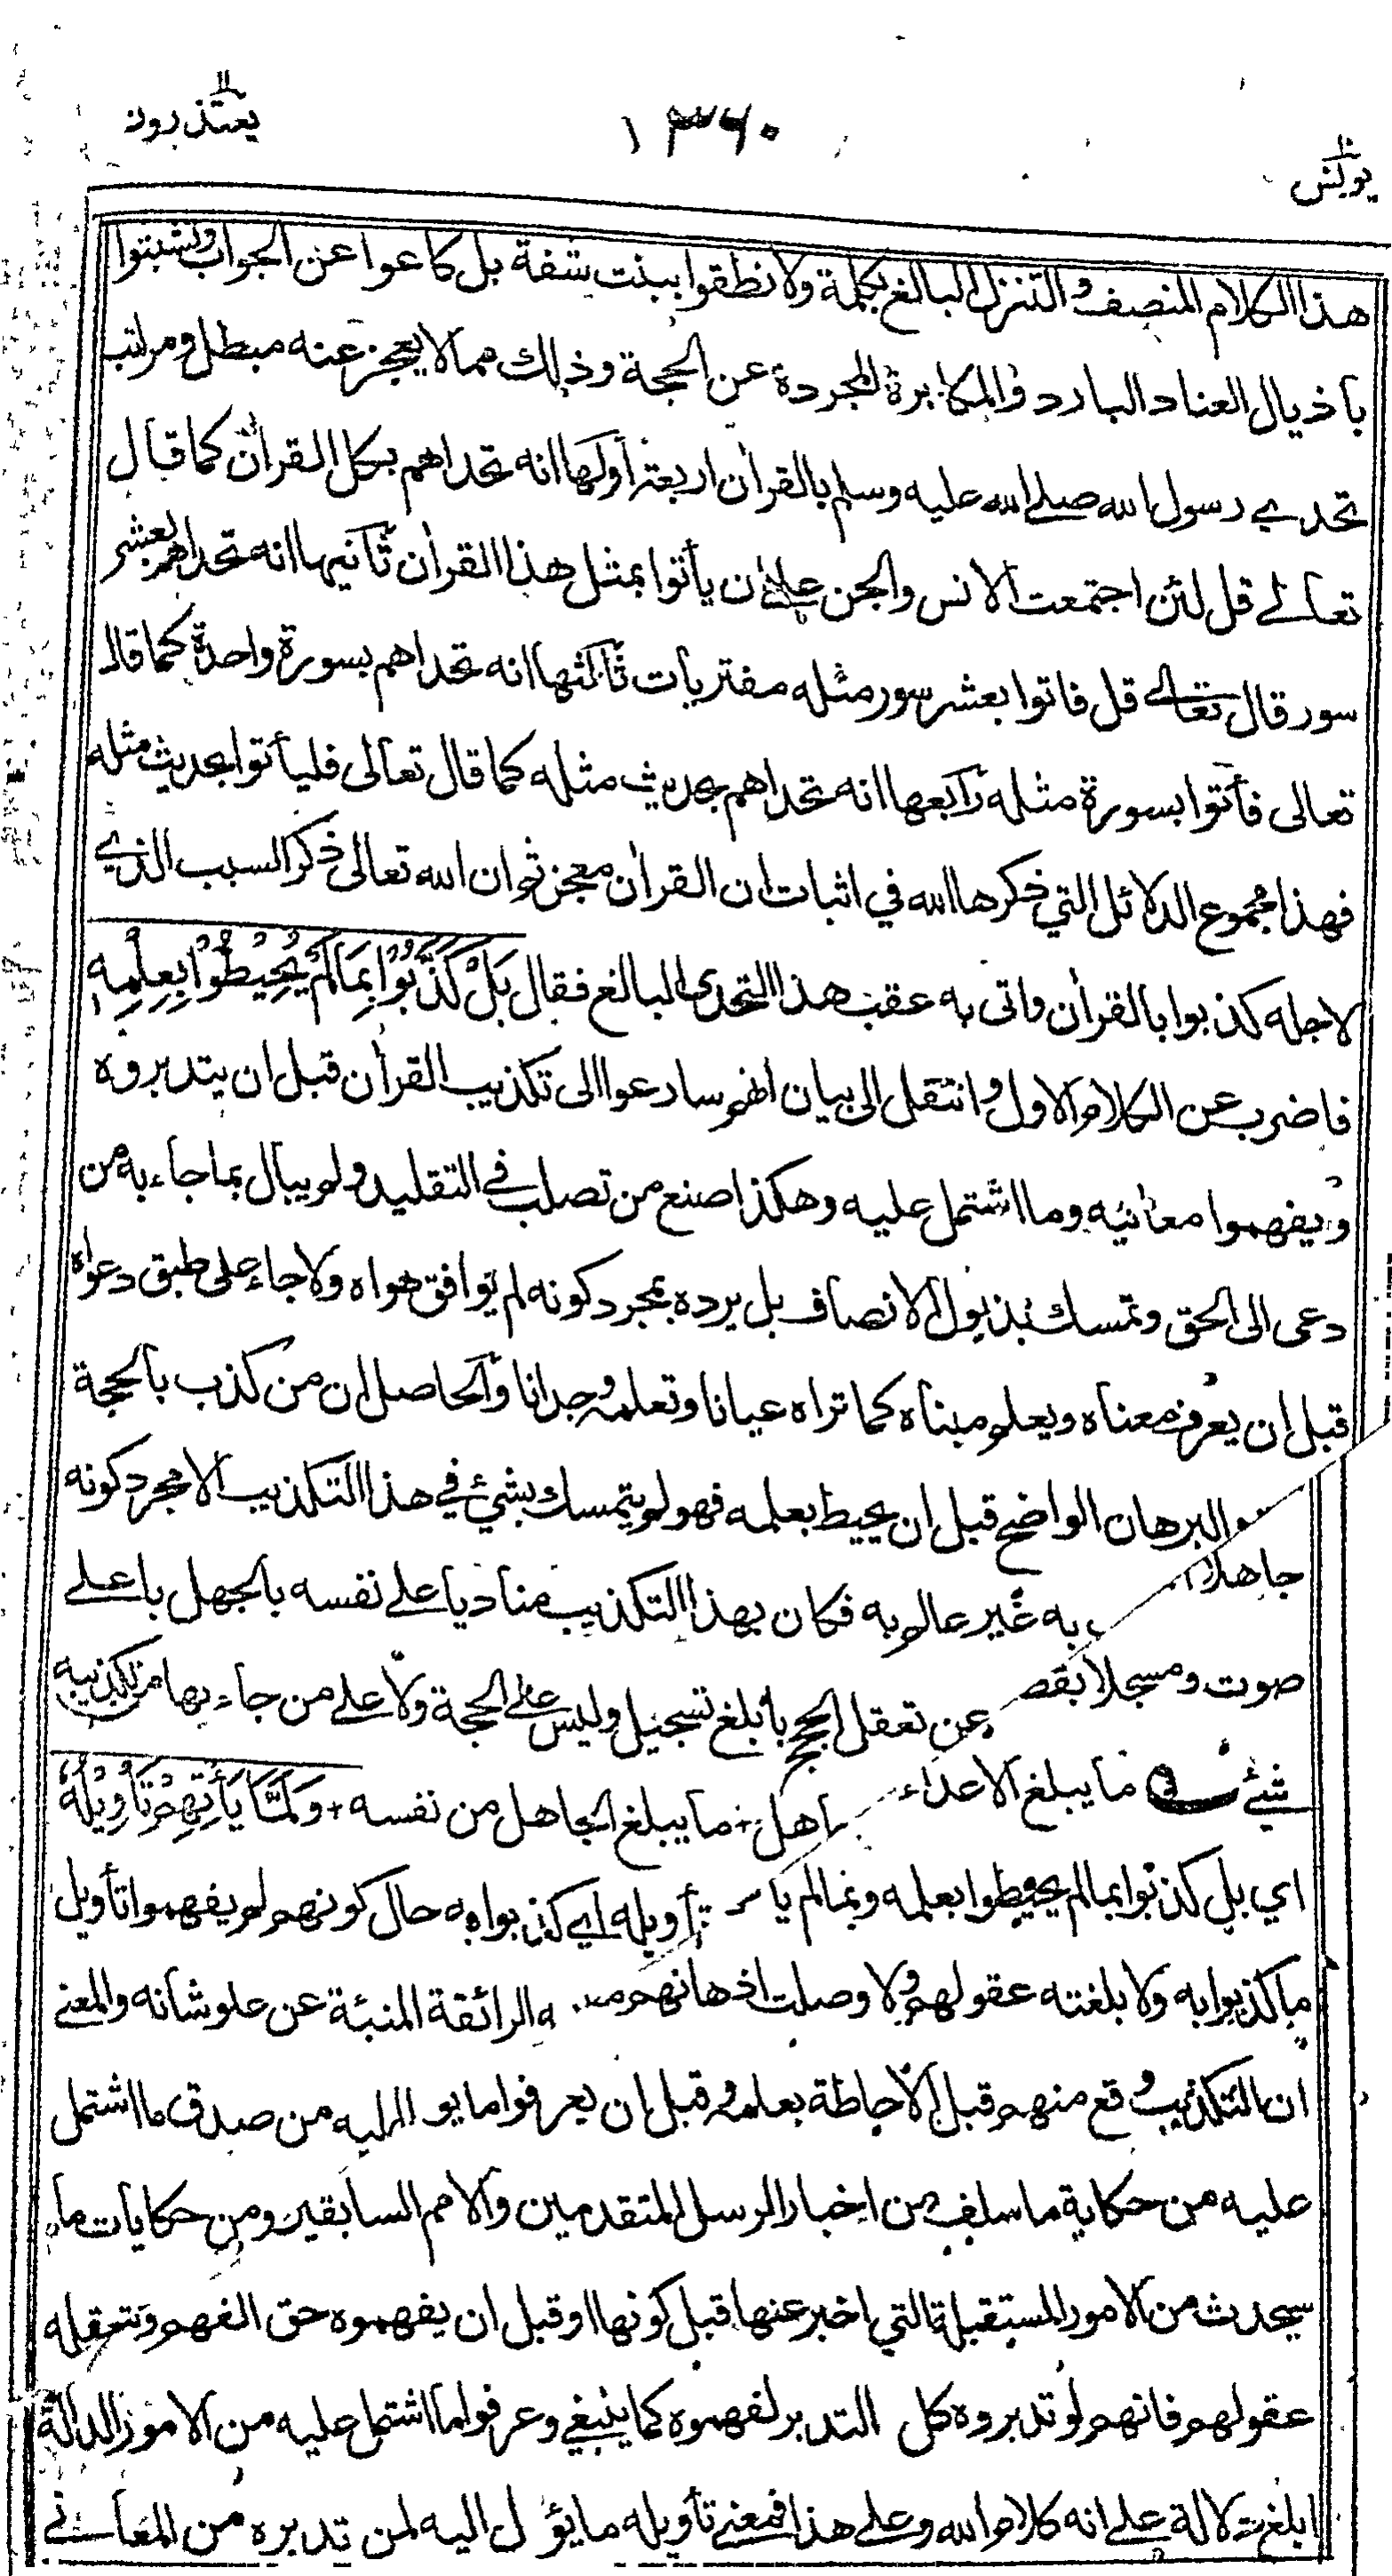 يونس ١٠
١٣٦٠
يعتذرون ١١
هذا الكلام المنصف والتنزل البالغ بكلمة ولا نطقوا ببنت شفة بل كاعوا عن الجواب وتشبثوا
بأذيال العناد البارد والمكابرة المجردة عن الحجة وذلك مما لا يعجز عنه مبطل ومراتب
تحدي رسول الله صلى الله عليه وسلم بالقرآن اربعة أولها انه تحداهم بكل القرآن كما قال
تعالى قل لئن اجتمعت الانس والجن على ان يأتوا بمثل هذا القرآن ثانيها انه تحداهم بعشر
سور قال تعالى قل فاتوا بعشر سور مثله مفتريات ثالثها انه تحداهم بسورة واحدة كما قال
تعالى فأتوا بسورة مثله رابعها انه تحداهم بحديث مثله كما قال تعالى فليأتوا بحديث مثله
فهذا مجموع الدلائل التي ذكرها الله في اثبات ان القرآن معجز ثم ان الله تعالى ذكر السبب الذي
لاجله كذبوا بالقرآن واتى به عقب هذا التحدي البالغ فقال بَلْ كَذَّبُوْا بِمَا لَمْ يُحِيْطُوْا بِعِلْمِهٖ
فاضرب عن الكلام الاول وانتقل الى بيان انهم سارعوا الى تكذيب القرآن قبل ان يتدبروه
ويفهموا معانيه وما اشتمل عليه وهكذا صنع من تصلب في التقليد ولم يبال بما جاء به من
دعى الى الحق وتمسك بذيول الانصاف بل يرده بمجرد كونه لم يوافق هواه ولا جاء على طبق دعواه
قبل ان يعرف معناه ويعلم مبناه كما تراه عيانا وتعلمه وجدانا والحاصل ان من كذب بالحجة
والبرهان الواضح قبل ان يحيط بعلمه فهو لم يتمسك بشيء في هذا التكذيب الا مجرد كونه
جاهلا به غير عالم به فكان بهذا التكذيب مناديا على نفسه بالجهل باعلى
صوت ومسجلا بقص عن تعقل الحجج بأبلغ تسجيل وليس على الحجة ولا على من جاء بها من تكذيبه
شيء ما يبلغ الاعداء اهل + ما يبلغ الجاهل من نفسه + وَلَمَّا يَأْتِهِمْ تَأْوِيْلُهٗ
اي بل كذبوا بما لم يحيطوا بعلمه وبما لم يأ تأويله اي كذبوا به حال كونهم لم يفهموا تأويل
ما كذبوا به ولا بلغته عقولهم ولا وصلت اذهانهم الرائقة المنبئة عن علو شانه والمعنى
ان التكذيب وقع منهم قبل الاحاطة بعلمه وقبل ان يعرفوا ما يؤل اليه من صدق ما اشتمل
عليه من حكاية ما سلف من اخبار الرسل المتقدمين والامم السابقين ومن حكايات ما
سيحدث من الامور المستقبلة التي اخبر عنها قبل كونها او قبل ان يفهموه حق الفهم وتتعقله
عقولهم فانهم لو تدبروه كل التدبر لفهموه كما ينبغي وعرفوا ما اشتمل عليه من الامور الدالة
ابلغ دلالة على انه كلام الله وعلى هذا فمعنى تأويله ما يؤل اليه لمن تدبره من المعاني